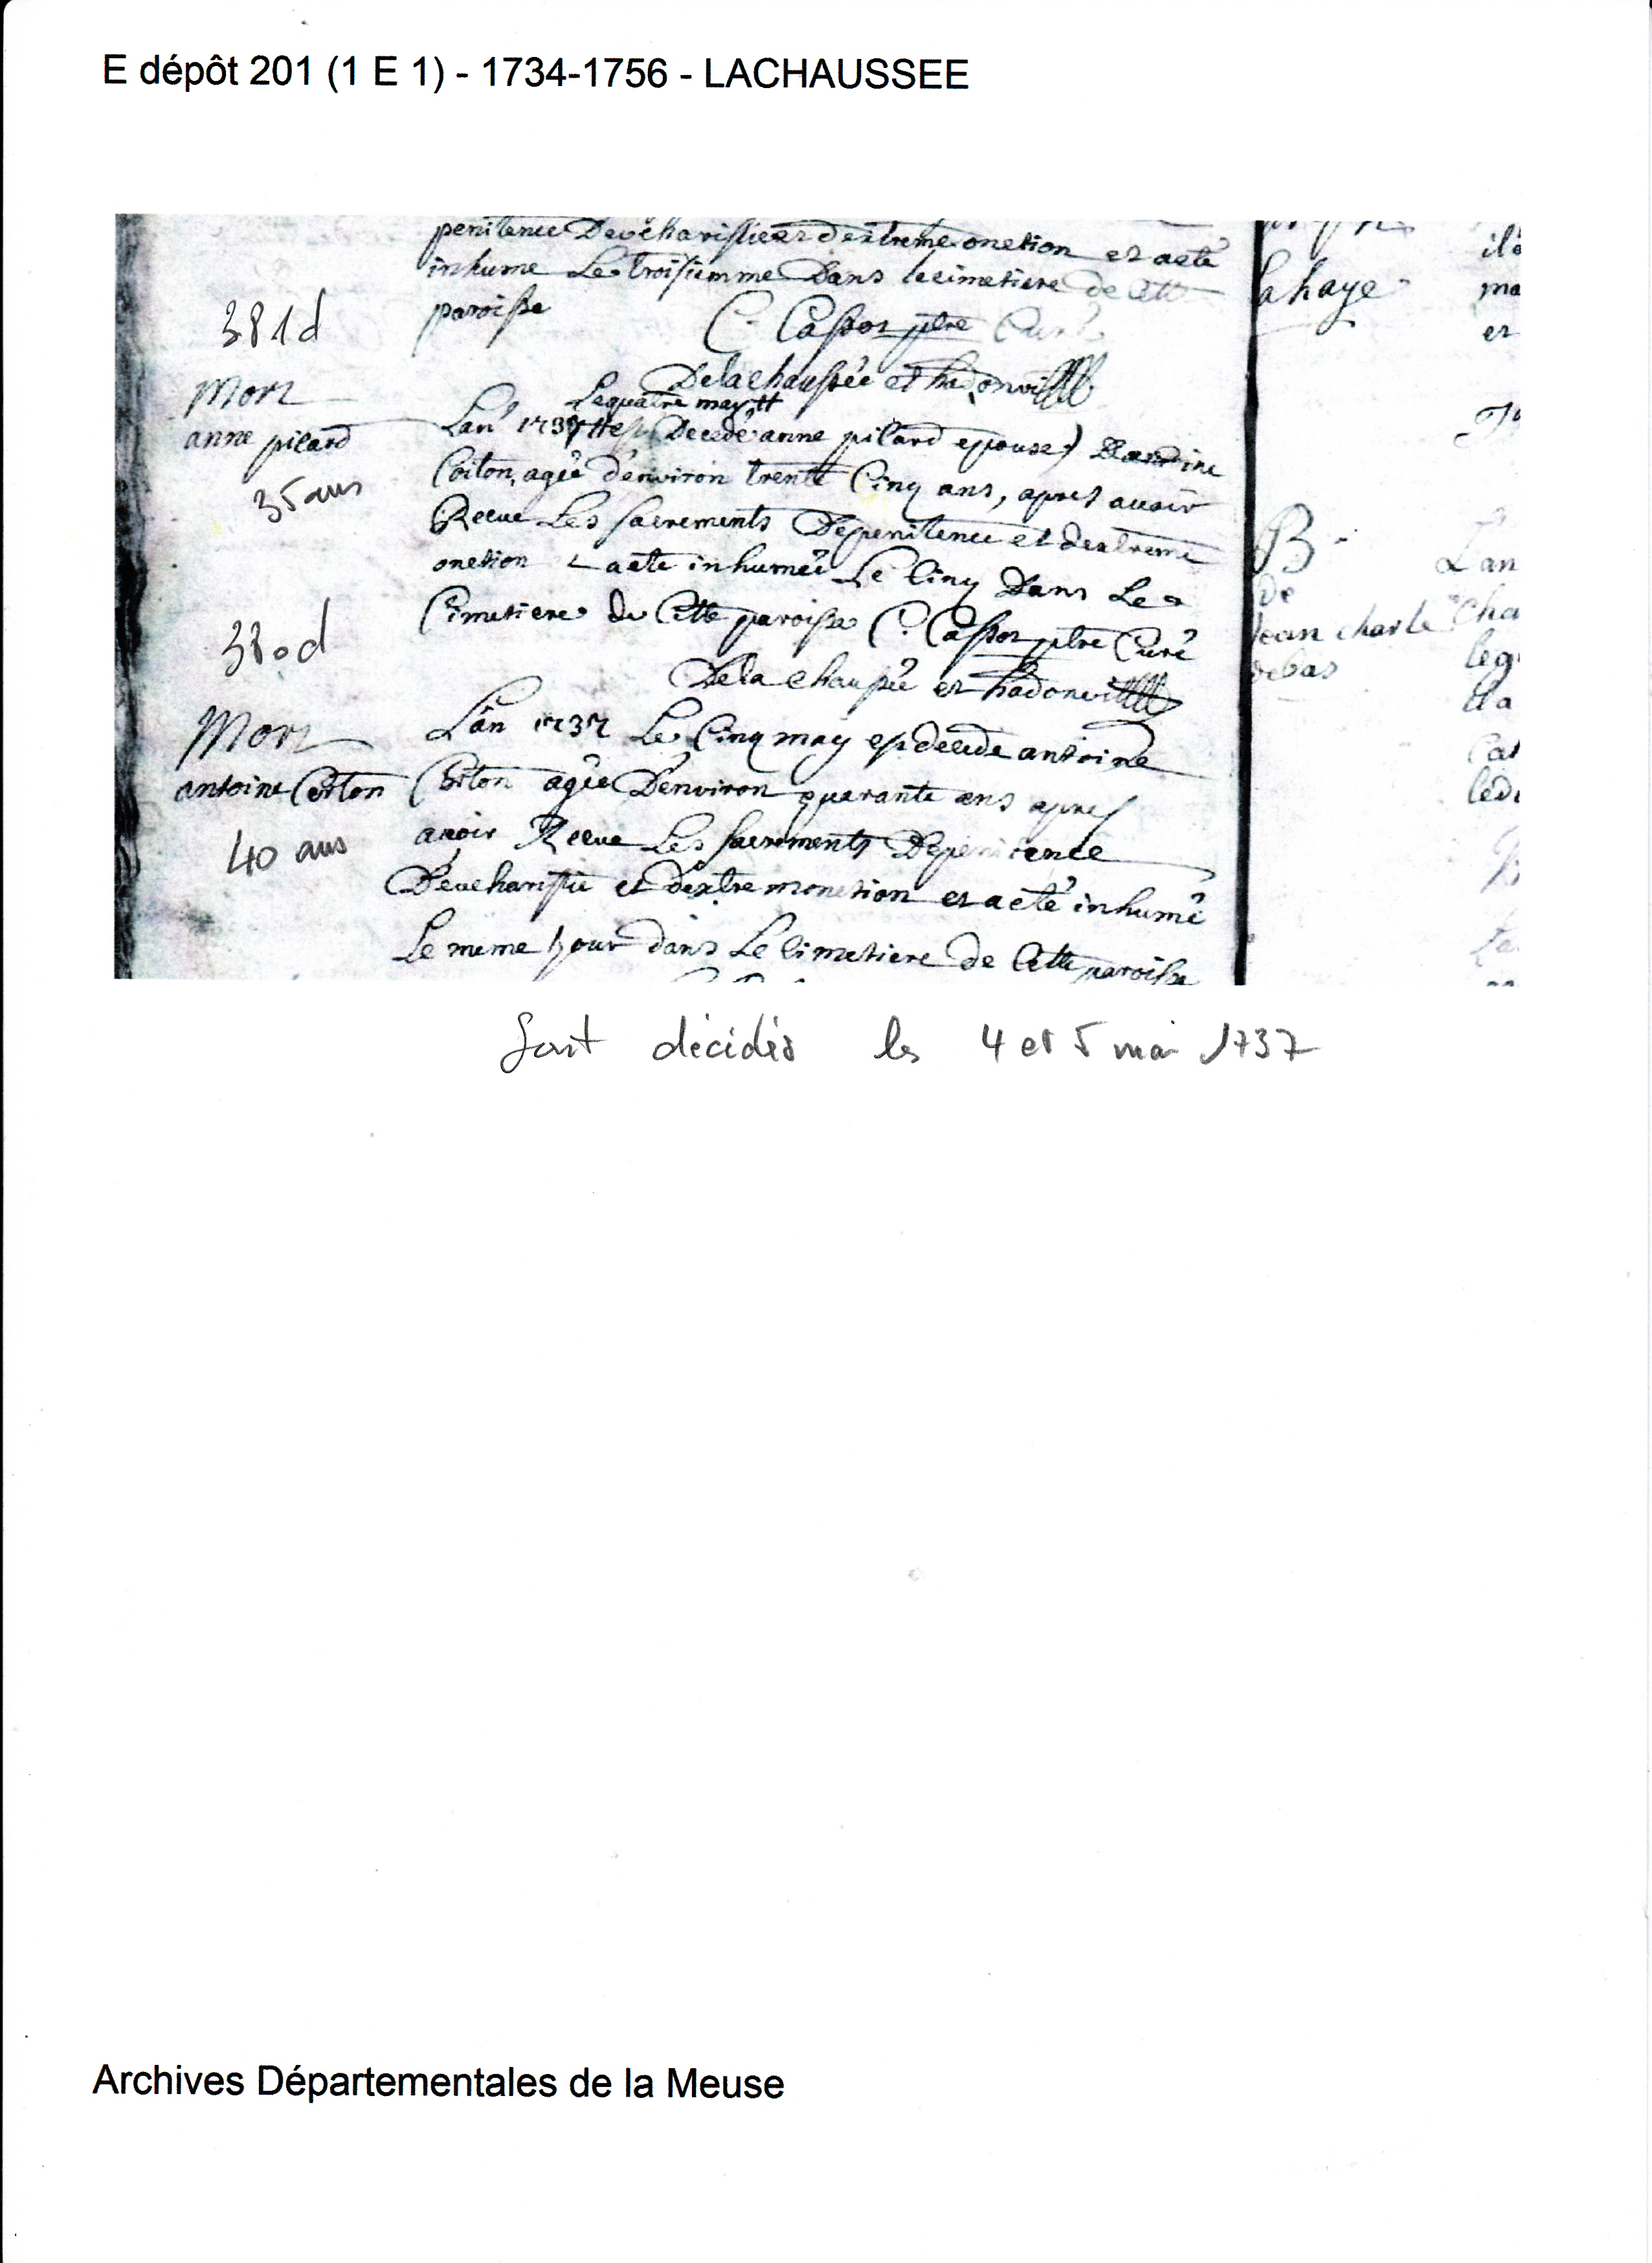 E dépôt 201 (1 E 1) - 1734-1756 - LACHAUSSEE
penitence Deucharistie et dextreme onction et aeté
inhume Le troisiemme Dans lecimetiere de Cette
paroisse
C. Cassor ptre Curé
Delachaussée et hadonville
381d
Mort
anne pilard
35 ans
Le quatre may
Lan 1737 est Decedé anne pilard epouse Dantoine
Coiton, agée denviron trente Cinq ans, apres avoir
Recue Les sacrements Depenitence et dextreme
onction et aeté inhumée Le Cinq Dans Le
Cimetiere de Cette paroisse C. Cassor ptre Curé
Dela chaussée et hadonville
380d
Mort
antoine Coiton
40 ans
Lan 1737 Le Cinq may est decede antoine
Coiton agée Denviron quarante ans apres
avoir Recue Les sacrements Depenitence
Deucharistie et dextremonction et aeté inhumé
Le meme jour dans Le Cimetiere de Cette paroisse
la haye
B
de
jean charle
debas
ilé
ma
et
Lan
Cha
leg
lla
Cat
ledi
sont décédés les 4 et 5 mai 1737
Archives Départementales de la Meuse